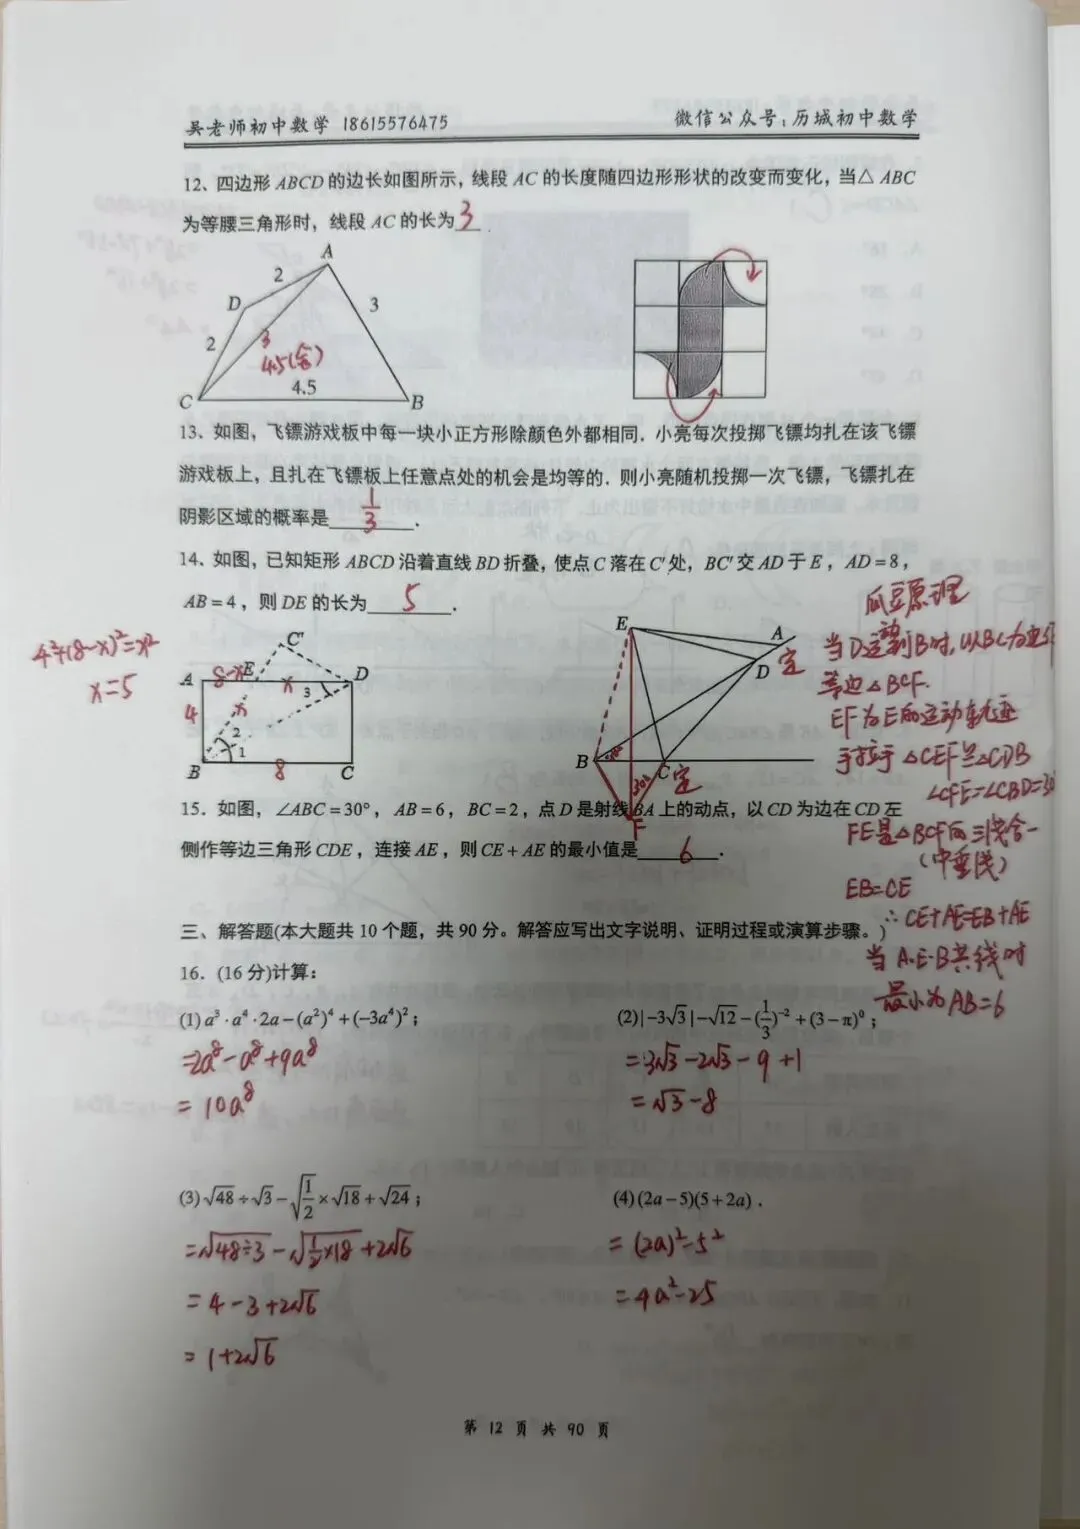 吴老师初中数学 18615576475 微信公众号:历城初中数学
12、四边形 ABCD 的边长如图所示，线段 AC 的长度随四边形形状的改变而变化，当△ ABC
为等腰三角形时，线段 AC 的长为 3 .
A
2
D
3
2
3
4.5(舍)
4.5
C
B
13、如图，飞镖游戏板中每一块小正方形除颜色外都相同．小亮每次投掷飞镖均扎在该飞镖
游戏板上，且扎在飞镖板上任意点处的机会是均等的．则小亮随机投掷一次飞镖，飞镖扎在
阴影区域的概率是 1/3 .
14、如图，已知矩形 ABCD 沿着直线 BD 折叠，使点 C 落在 C′ 处，BC′ 交 AD 于 E，AD=8，
AB=4，则 DE 的长为 5 .
4²+(8-x)²=x²
x=5
C′
A 8-x E x D
3
4
x
2
1
B 8 C
E
A
定
D
B
C 定
30°
F
瓜豆原理
当D运动到B时,以BC为边作
等边△BCF.
EF为E的运动轨迹
手拉手 △CEF≌△CDB
∠CFE=∠CBD=30
FE是△BCF的三线合一
(中垂线)
EB=CE
∴CE+AE=EB+AE
当A.E.B共线时
最小为AB=6
15、如图，∠ABC=30°，AB=6，BC=2，点 D 是射线 BA 上的动点，以 CD 为边在 CD 左
侧作等边三角形 CDE，连接 AE，则 CE+AE 的最小值是 6 .
三、解答题(本大题共 10 个题，共 90 分。解答应写出文字说明、证明过程或演算步骤。)
16．(16 分)计算:
(1) a³·a⁴·2a−(a²)⁴+(−3a⁴)²；
=2a⁸-a⁸+9a⁸
=10a⁸
(2)|−3√3|−√12−(1/3)⁻²+(3−π)⁰；
=3√3-2√3-9+1
=√3-8
(3)√48÷√3−√(1/2)×√18+√24；
=√(48÷3)-√(1/2×18)+2√6
=4-3+2√6
=1+2√6
(4)(2a−5)(5+2a)．
=(2a)²-5²
=4a²-25
第 12 页 共 90 页